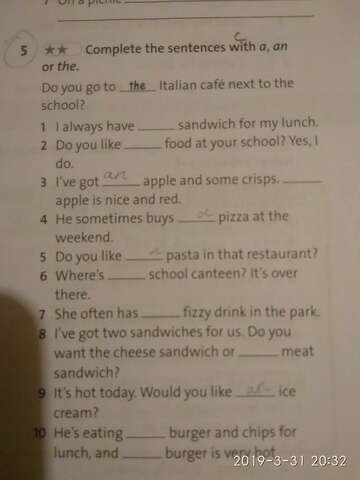 7 On a picnic
5 ★★ Complete the sentences with a, an
or the.
Do you go to the Italian café next to the
school?
1 I always have ______ sandwich for my lunch.
2 Do you like ______ food at your school? Yes, I
do.
3 I've got an apple and some crisps. ______
apple is nice and red.
4 He sometimes buys a pizza at the
weekend.
5 Do you like a pasta in that restaurant?
6 Where's ______ school canteen? It's over
there.
7 She often has ______ fizzy drink in the park.
8 I've got two sandwiches for us. Do you
want the cheese sandwich or ______ meat
sandwich?
9 It's hot today. Would you like an ice
cream?
10 He's eating ______ burger and chips for
lunch, and ______ burger is very hot.
2019-3-31 20:32